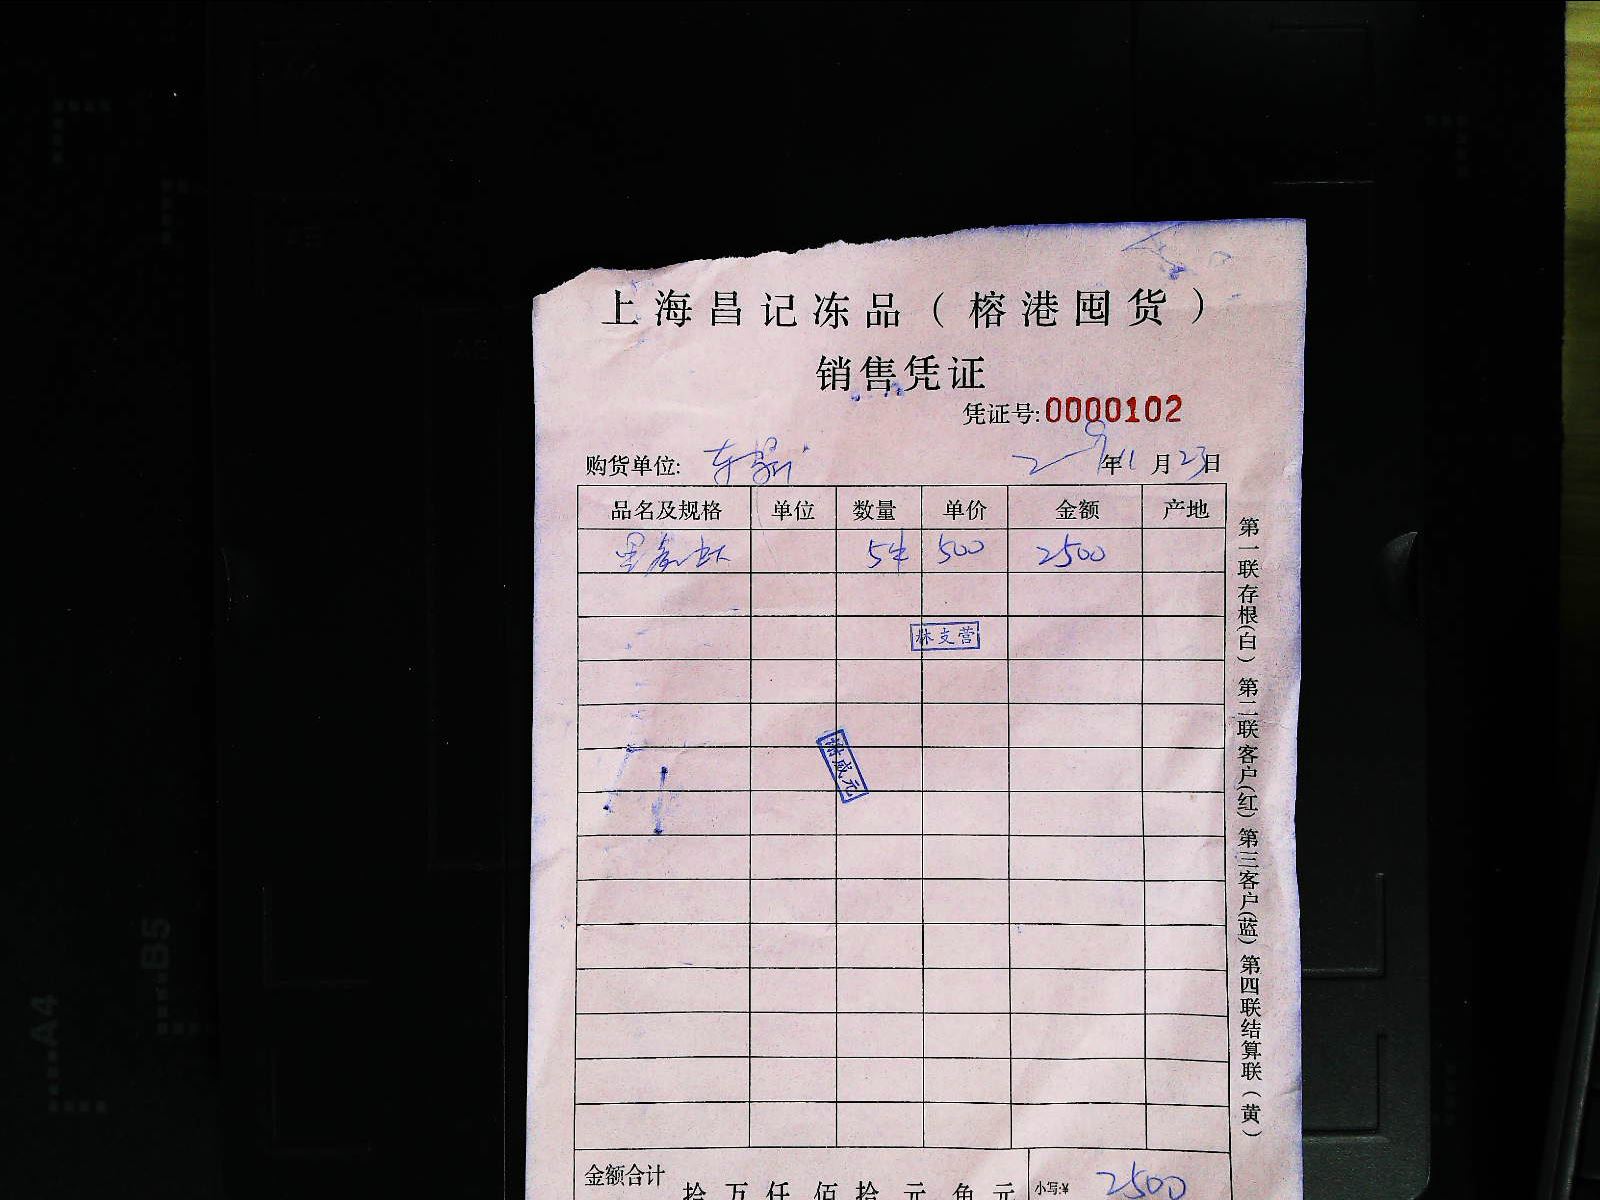 上海昌记冻品（榕港囤货）
销售凭证
凭证号:0000102
购货单位: 年11月23日
品名及规格 单位 数量 单价 金额 产地
5件 500 2500
林支营
林威元
金额合计 拾 万 仟 佰 拾 元 角 元 小写:¥ 2500
第一联存根(白) 第二联客户(红) 第三客户(蓝) 第四联结算联(黄)
A4
B5